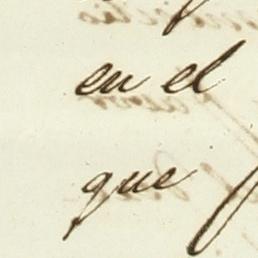 en el
que